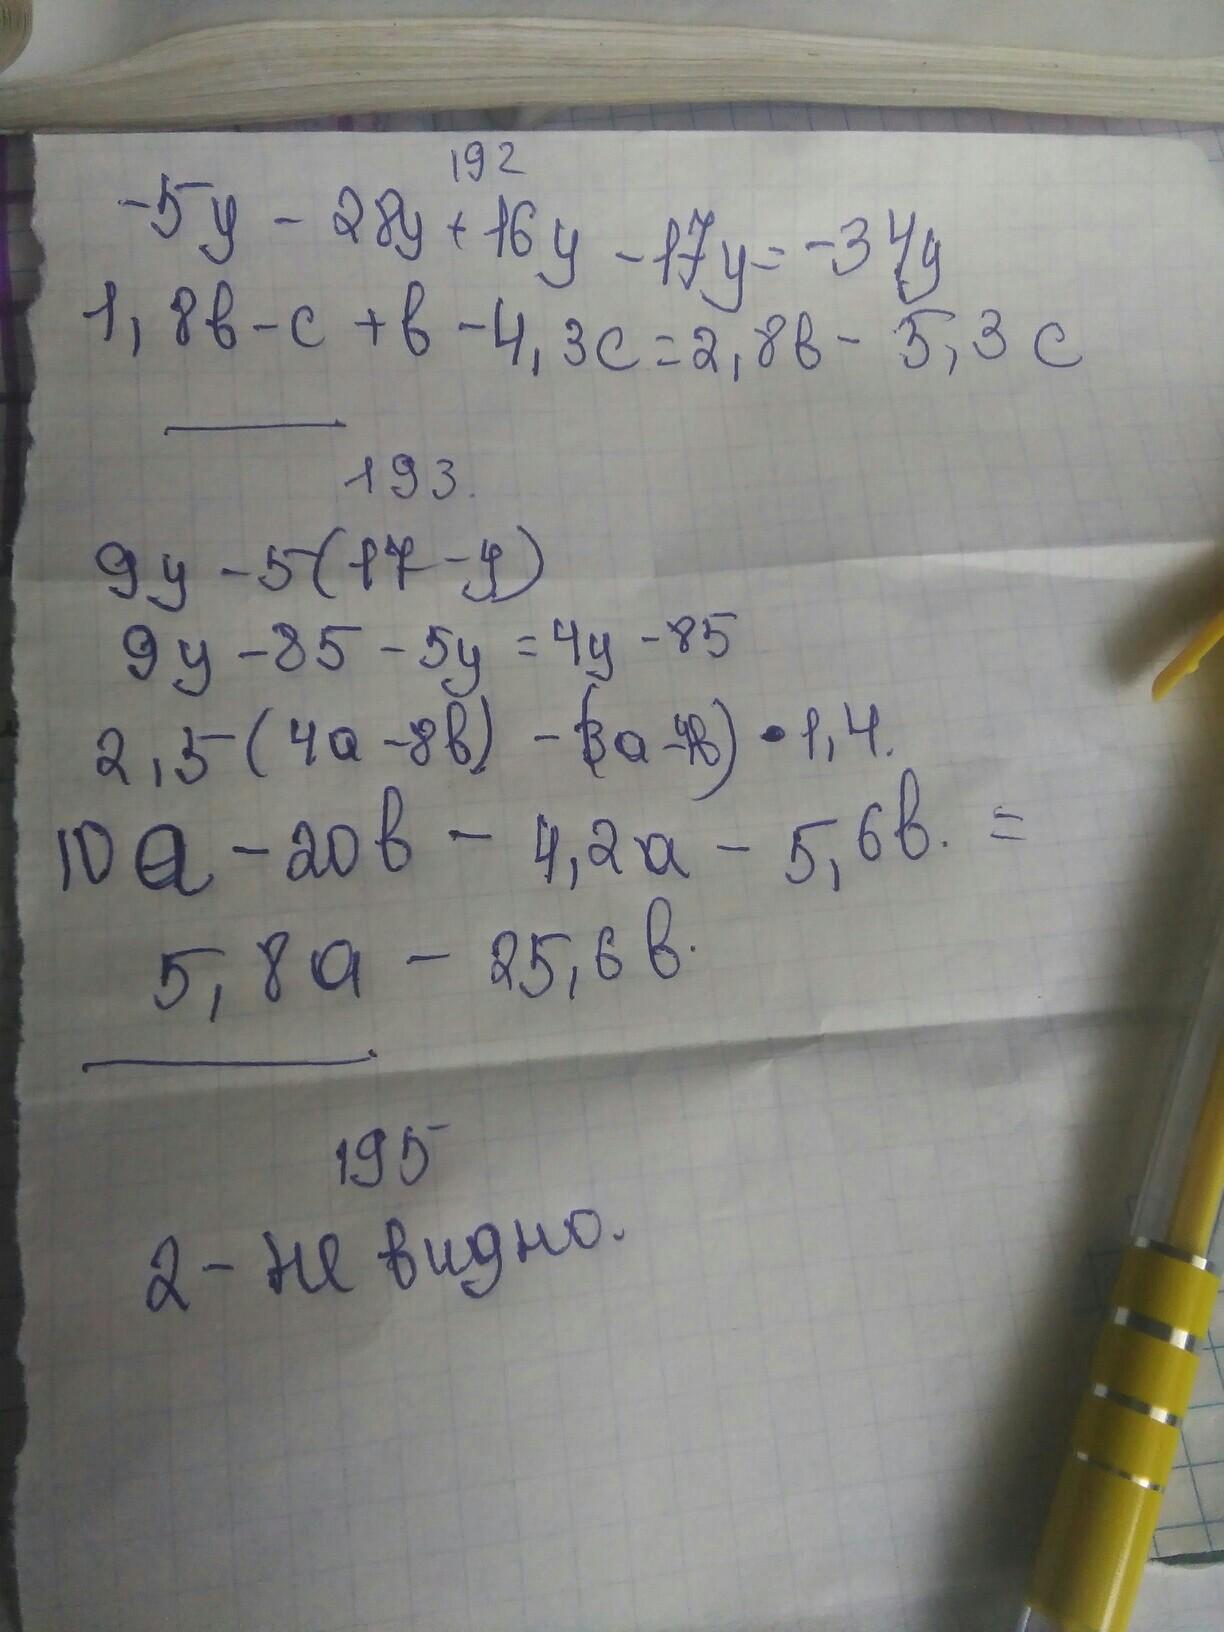 192
-5у - 28у + 16у - 17у = -34у
1,8в - с + в - 4,3с = 2,8в - 5,3с
193.
9у - 5(17 - у)
9у - 85 - 5у = 4у - 85
2,5(4а - 8в) - (3а - 4в) • 1,4.
10а - 20в - 4,2а - 5,6в. =
5,8а - 25,6в.
195
2 - не видно.